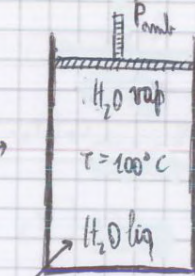 Pamb
H₂O vap
T = 100° C
H₂O liq